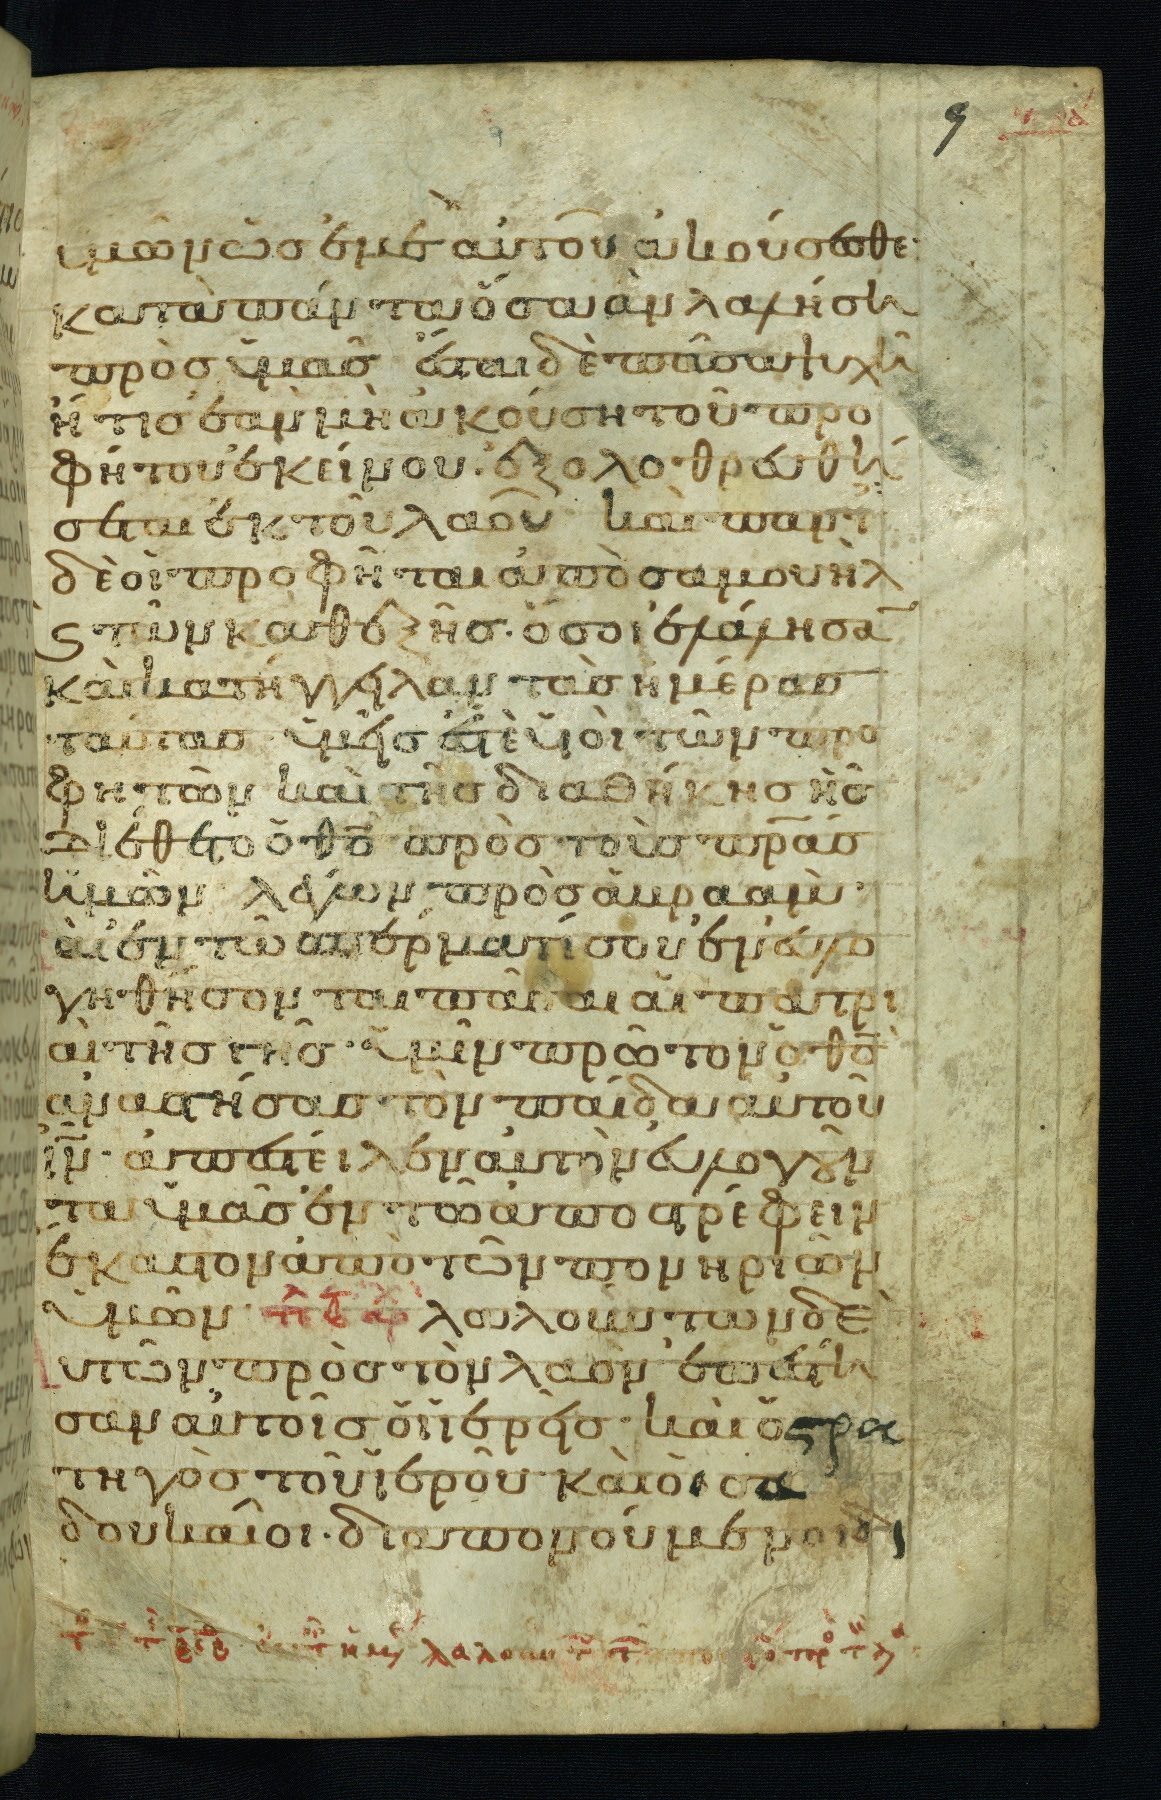 9
ὑμῶν ὡς ἐμὲ αὐτοῦ ἀκούσεσθε
κατὰ πάντα ὅσα ἂν λαλήσῃ
πρὸς ὑμᾶς ἔσται δὲ πᾶσα ψυχὴ
ἥτις ἐὰν μὴ ἀκούσῃ τοῦ προ
φήτου ἐκείνου. ἐξολοθρευθή
σεται ἐκ τοῦ λαοῦ καὶ πάντες
δὲ οἱ προφῆται ἀπὸ σαμουὴλ
ϛ τῶν καθεξῆς. ὅσοι ἐλάλησα̅
καὶ κατήγγειλαν τὰς ἡμέρας
ταύτας ὑμεῖς ἐστὲ ὑιοὶ τῶν προ
φητῶν καὶ τῆς διαθήκης ἧς
διέθετο ὁ θ̅ς̅ πρὸς τοὺς π̅ρ̅α̅ς̅
ὑμῶν λέγων πρὸς ἀβραάμ.
καὶ ἐν τῶ σπέρματί σου ἐνευλο
γηθήσονται πᾶσαι αἱ πατρι
αὶ τῆς γῆς ὑμῖν πρῶτον ὁ θ̅ς̅
ἀναστήσας τὸν παῖδα αὐτοῦ
ι̅ν̅ ἀπέστειλεν αὐτὸν εὐλογοῦν
τα ὑμᾶς ἐν τῶ ἀποστρέφειν
ἕκαστον ἀπὸ τῶν πονηριῶν
ὑμῶν λαλούντων δὲ
αὐτῶν πρὸς τὸν λαὸν ἐπέστη
σαν αὐτοῖς οἱ ἱερεῖς καὶ ὁ ϛρα
τηγὸς τοῦ ἱεροῦ καὶ οἱ σα
δουκαῖοι. διαπονούμενοι δι